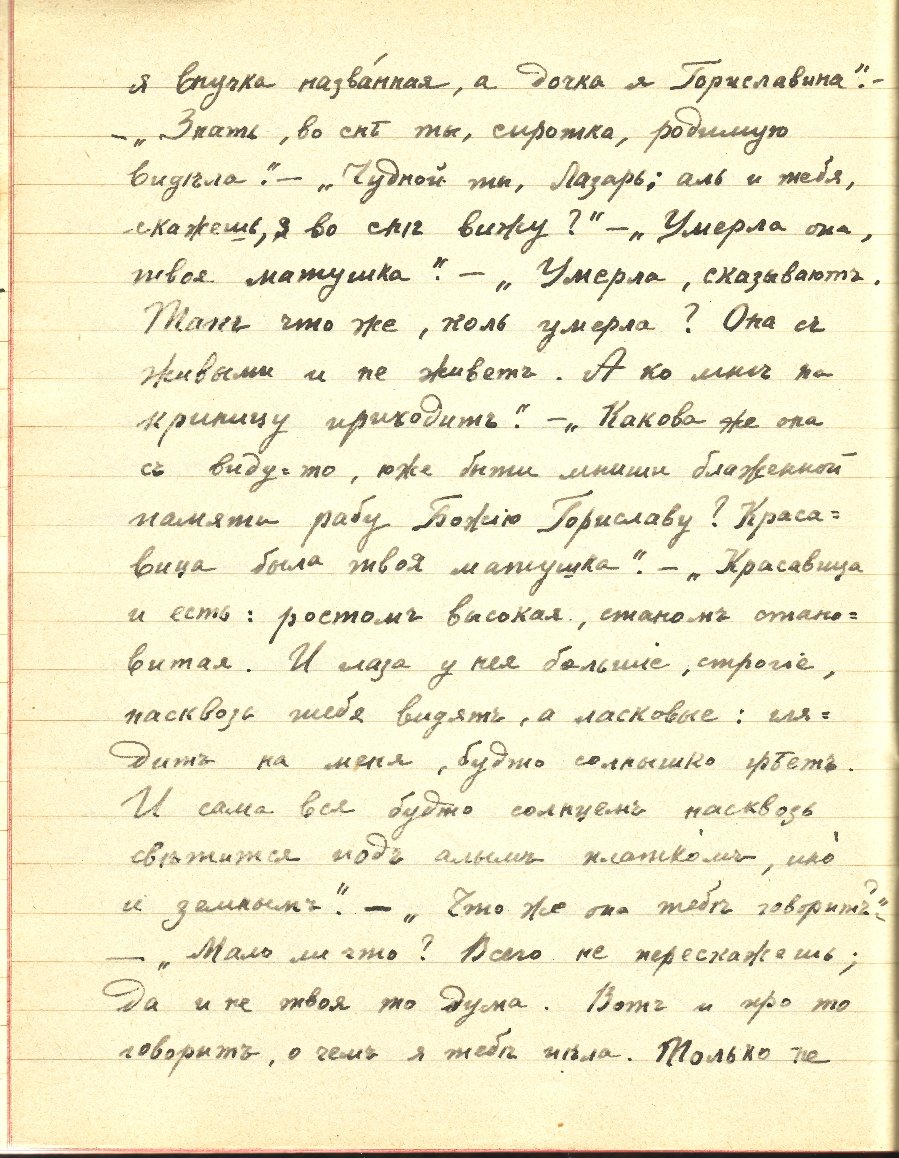 я внучка назва́нная, а дочка я Гориславина".—
—„Знать, во снѣ ты, сиротка, родимую
видѣла".— „Чудной ты, Лазарь; аль и тебя,
скажешь, я во снѣ вижу?"—„Умерла она,
твоя матушка".— „Умерла, сказываютъ.
Такъ что же, коль умерла? Она съ
живыми и не живетъ. А ко мнѣ на
криницу приходитъ".—„Какова же она
съ виду-то, юже быти мниши блаженной
памяти рабу Божію Гориславу? Краса=
вица была твоя матушка".—„Красавица
и есть: ростомъ высокая, станомъ стано=
витая. И глаза у нея большіе, строгіе,
насквозь тебя видятъ, а ласковые: гля=
дитъ на меня, будто солнышко грѣетъ.
И сама вся будто солнцемъ насквозь
свѣтится подъ алымъ платко́мъ, ино́
и земнымъ".—„Что же она тебѣ говоритъ?"—
—„Мало ли что? Всего не перескажешь;
да и не твоя то дума. Вотъ и про то
говоритъ, о чемъ я тебѣ пѣла. Только не